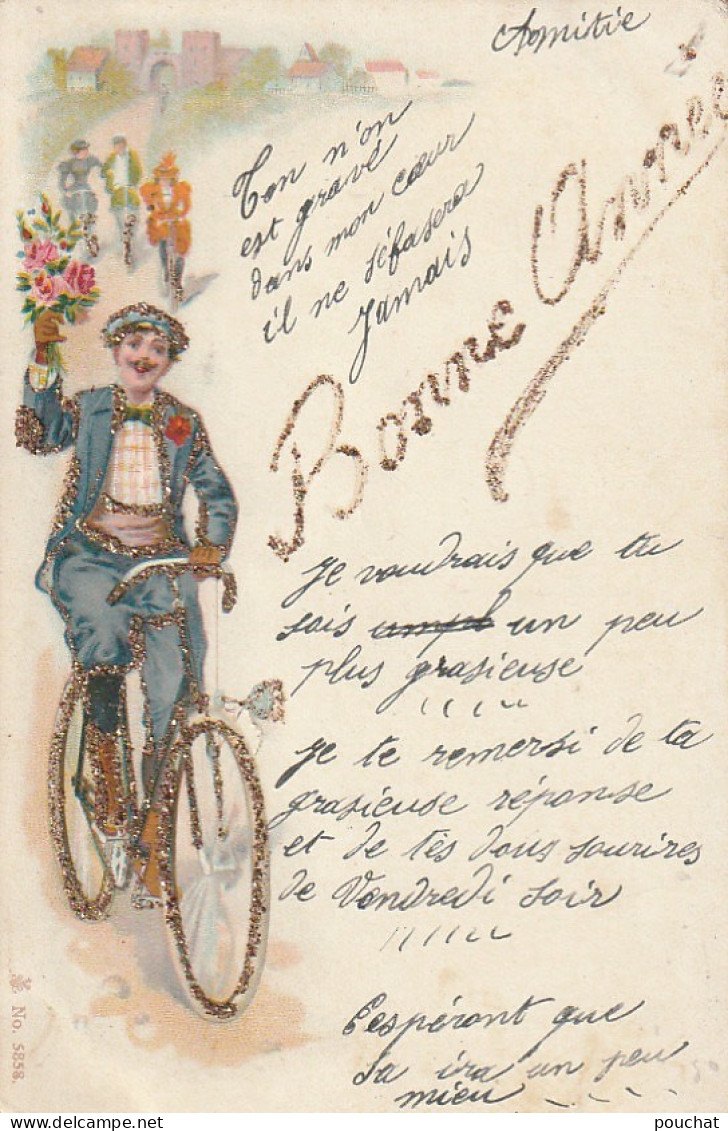 Amitie
Ton n'on
est gravé
dans mon cœur
il ne séfasera
Jamais
Bonne Année
Je voudrais que tu
sois un peu
plus grasieuse
Je te remersi de ta
grasieuse réponse
et de tes dous sourires
de Vendredi soir
Cespéront que
sa ira un peu
mieu
No. 5858.
pouchat